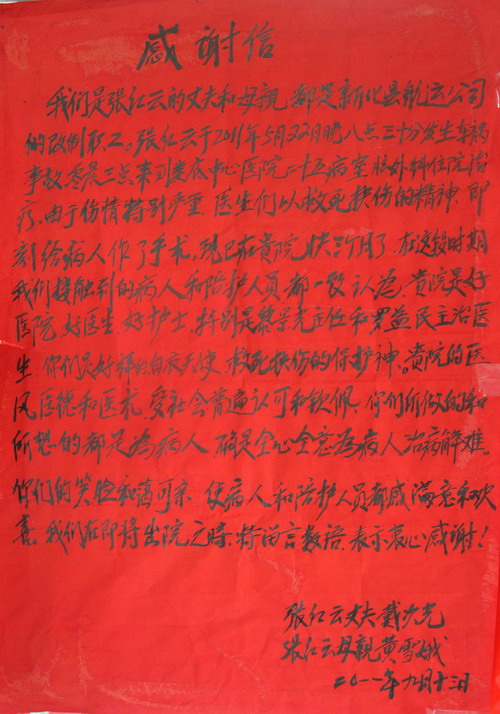 感谢信
我们是张红云的丈夫和母親，都是新化县航运公司
的改制职工。张红云于2011年5月22日晚八点三十分发生车祸
事故，零晨三点来到娄底中心医院二十五病室脑外科住院治
疗，由于伤情特别严重，医生们以救死扶伤的精神，即
刻给病人作了手术，现已在贵院快3个月了，在这段时期
我们接触到的病人和陪护人员都一致认为，贵院是好
医院，好医生，好护士，特别是主任和罗益民主治医
生，你们是好样的白衣天使，救死扶伤的保护神。贵院的医
风医德和医术，受社会普遍认可和钦佩，你们所做的和
所想的都是为病人，确是全心全意为病人治病解难。
你们的笑脸和蔼可亲，使病人和陪护人员都感满意和欢
喜。我们在即将出院之时，特留言数语，表示衷心感谢！
张红云丈夫戴光
张红云母親黄雪娥
二〇一一年九月十三日